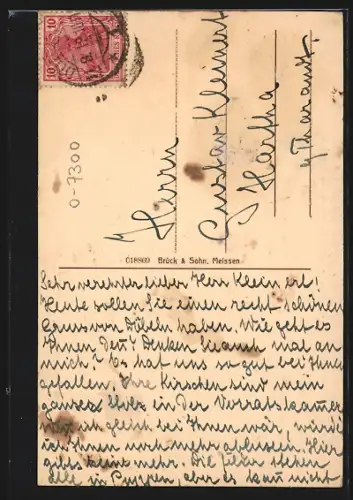 10 10
Herrn
Gustav Kleinert
Hartha
b/ Tharandt.
0-7300
C18869 Brück & Sohn, Meissen
Sehr verehrter lieber Herr Kleinert!
Heute sollen Sie einen recht schönen
Gruss von Döbeln haben. Wie geht es
Ihnen den? Denken Sie auch mal an
mich? Es hat uns so gut bei Ihnen
gefallen. Ihre Kirschen sind mein
ganzes Stolz in der Vorratskammer
wenn ich gleich bei Ihnen wär, würde
ich Ihnen noch mehr abkaufen. Hier
gibts keine mehr. Die stehen
alle in Puppen, aber es kann nicht